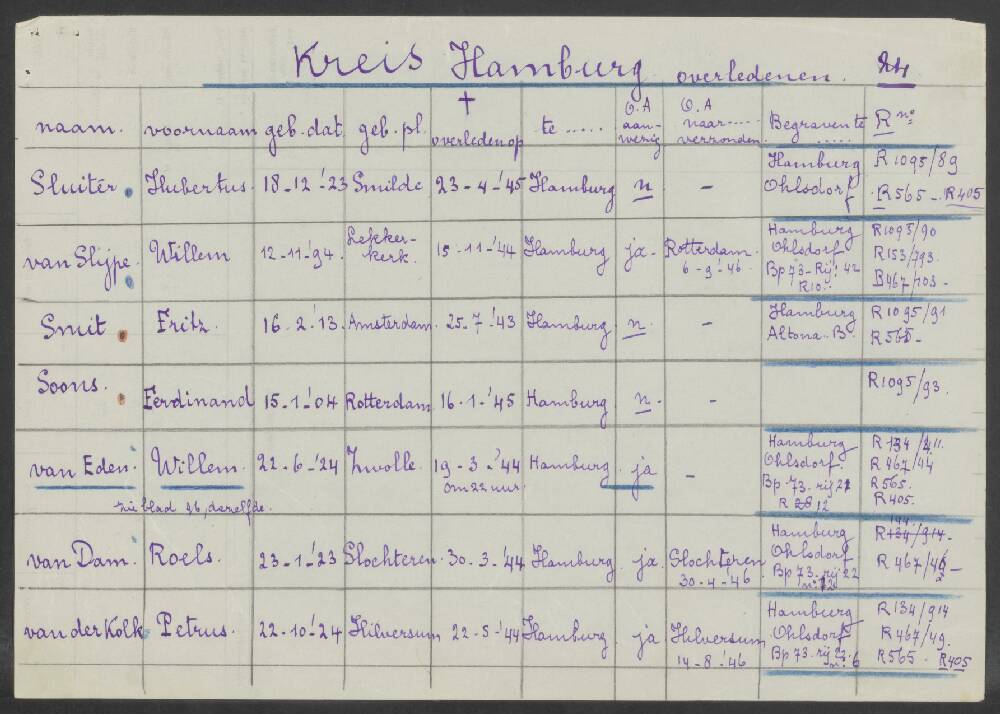 Kreis Hamburg overledenen. 24
naam. voornaam geb. dat. geb. pl. † overleden op te ..... O.A aanwezig O.A naar .... verzonden. Begraven te ..... R no
Sluiter. Hubertus 18-12-'23 Smilde 23-4-'45 Hamburg n - Hamburg Ohlsdorf R 1095/89
R565 - R405
van Slijpe. Willem 12-11-'94. Lekkerkerk. 15-11-'44 Hamburg ja. Rotterdam. 6-9-'46. Hamburg Ohlsdorf Bp 73-Rij: 42 R10. R1095/90
R153/793.
B467/103-
Smit Fritz. 16-2-'13. Amsterdam. 25-7-'43 Hamburg n. - Hamburg Altona. B. R1095/91
R565-
Soons. Ferdinand 15-1-'04 Rotterdam 16-1-'45 Hamburg n. - R1095/93.
van Eden. Willem. 22-6-'24 Zwolle. 19-3-'44 om 22 uur. Hamburg. ja - Hamburg Ohlsdorf. Bp. 73. rij 22 R 12
R 467/44
R565.
R405.
zie blad 26, dezelfde.
van Dam. Roels. 23-1-'23 Slochteren. 30-3-'44 Hamburg. ja. Slochteren 30-4-'46 Hamburg Ohlsdorf Bp 73. rij 22
R 467/46-
van der Kolk Petrus. 22-10-'24 Hilversum 22-5-'44 Hamburg. ja Hilversum 14-8-'46 Hamburg Ohlsdorf Bp 73. rij 22. n. 6 R134/914
R467/49.
R565. R405